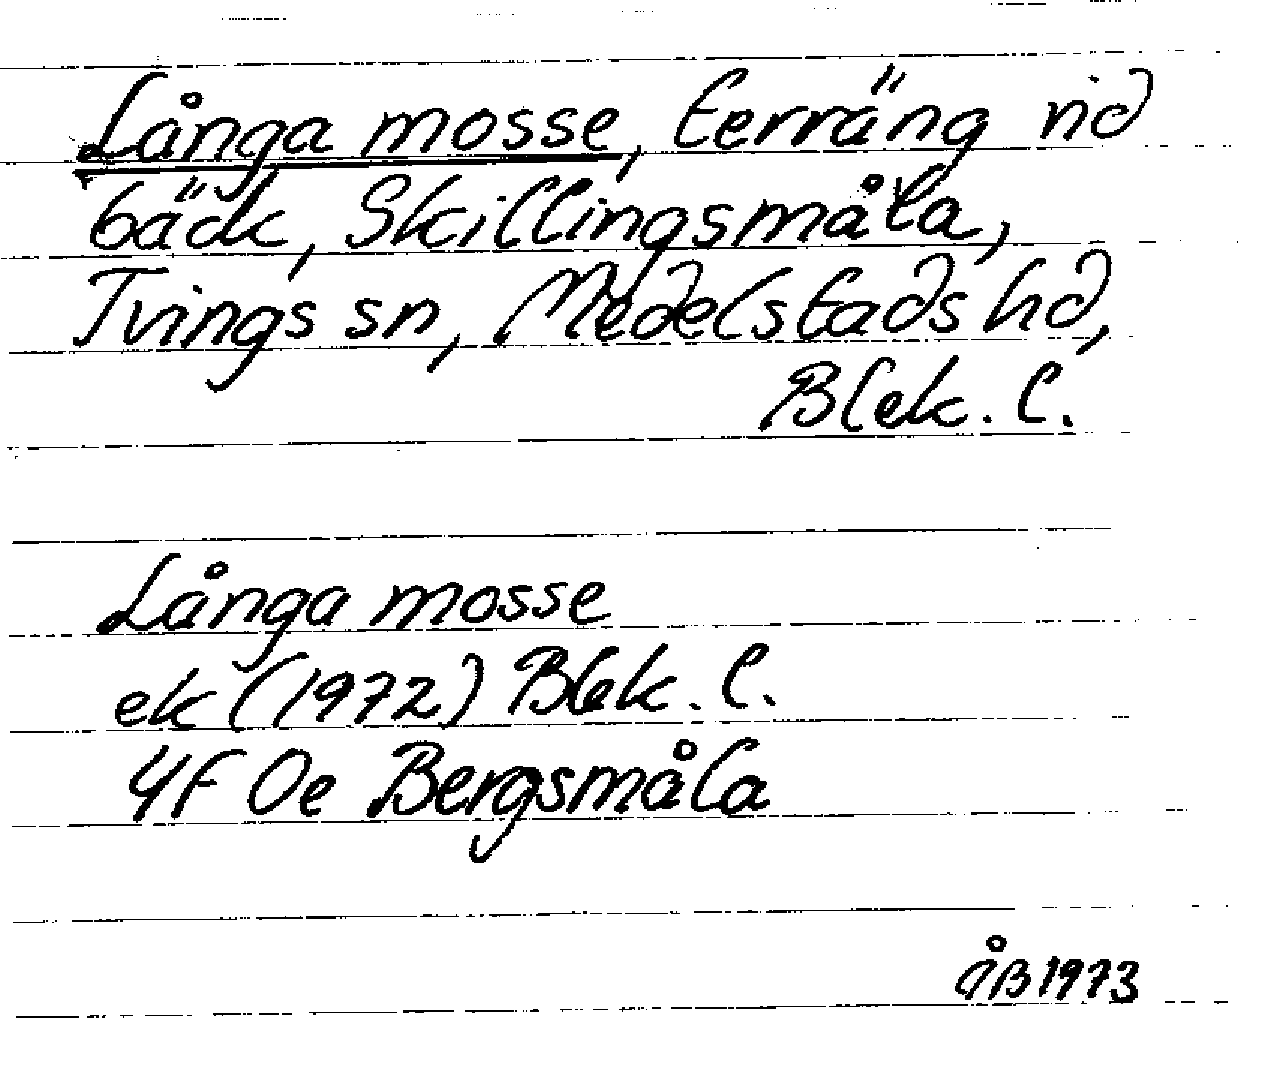 Långa mosse, terräng vid
bäck, Skillingsmåla,
Tvings sn, Medelstads hd,
Blek. l.
Långa mosse
ek (1972) Blek. l.
4F 0e Bergsmåla
ÅB 1973